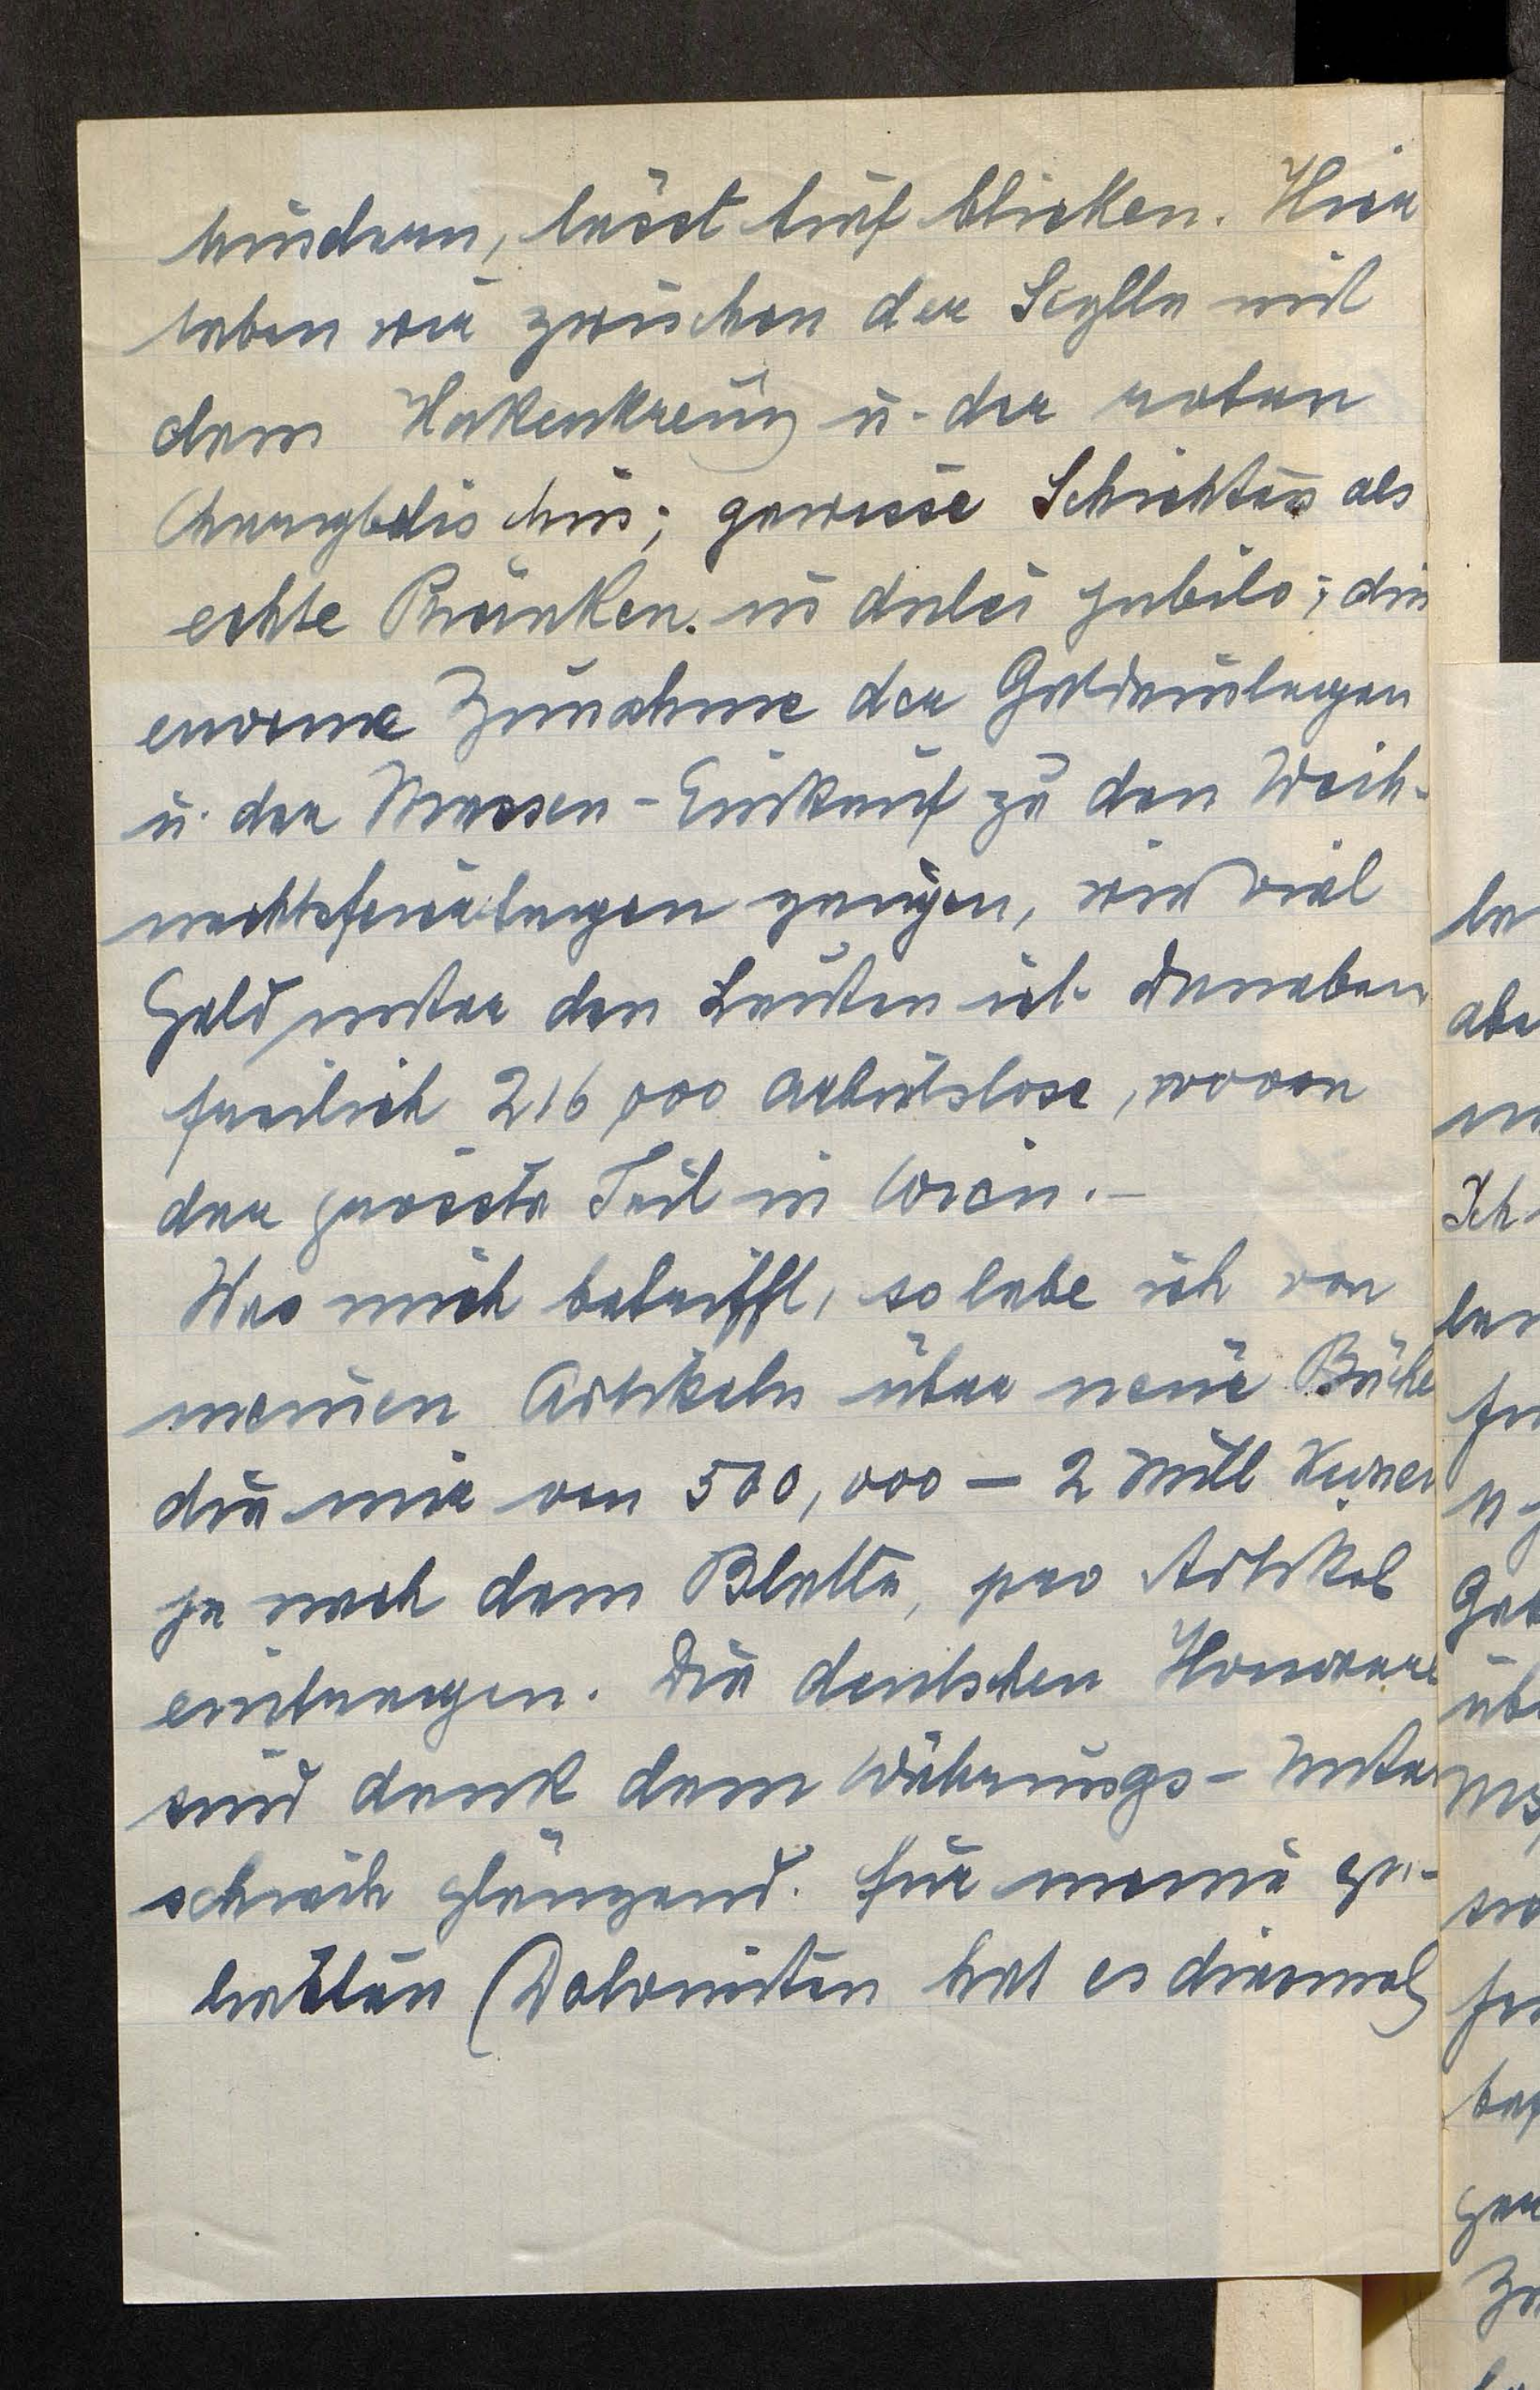 hindern, lässt tief blicken. Hier
leben wir zwischen der Scylla mit
dem Hakenkreuz u. der roten
Charybdis hin; gewisse Schichten als
echte Phäaken in dulci jubilo; die
enorme Zunahme der Geldeinlagen
u. der Massen-Einkauf zu den Weih-
nachtsfeiertagen zeigen, wie viel
Geld unter den Leuten ist. Daneben
freilich 216,000 Arbeitslose, wovon
der grösste Teil in Wien. –
Was mich betrifft, so lebe ich von
meinen Artikeln über neue Büche
die mir von 500,000 – 2 Mill Kronen
je nach dem Blatte, pro Artikel
eintragen. Die deutschen Honorare
sind dank dem Währungs-Unter
schiede glänzend. Für meine ge-
liebten Dolomiten hat es diesmal
la
abe
Ich
Zu